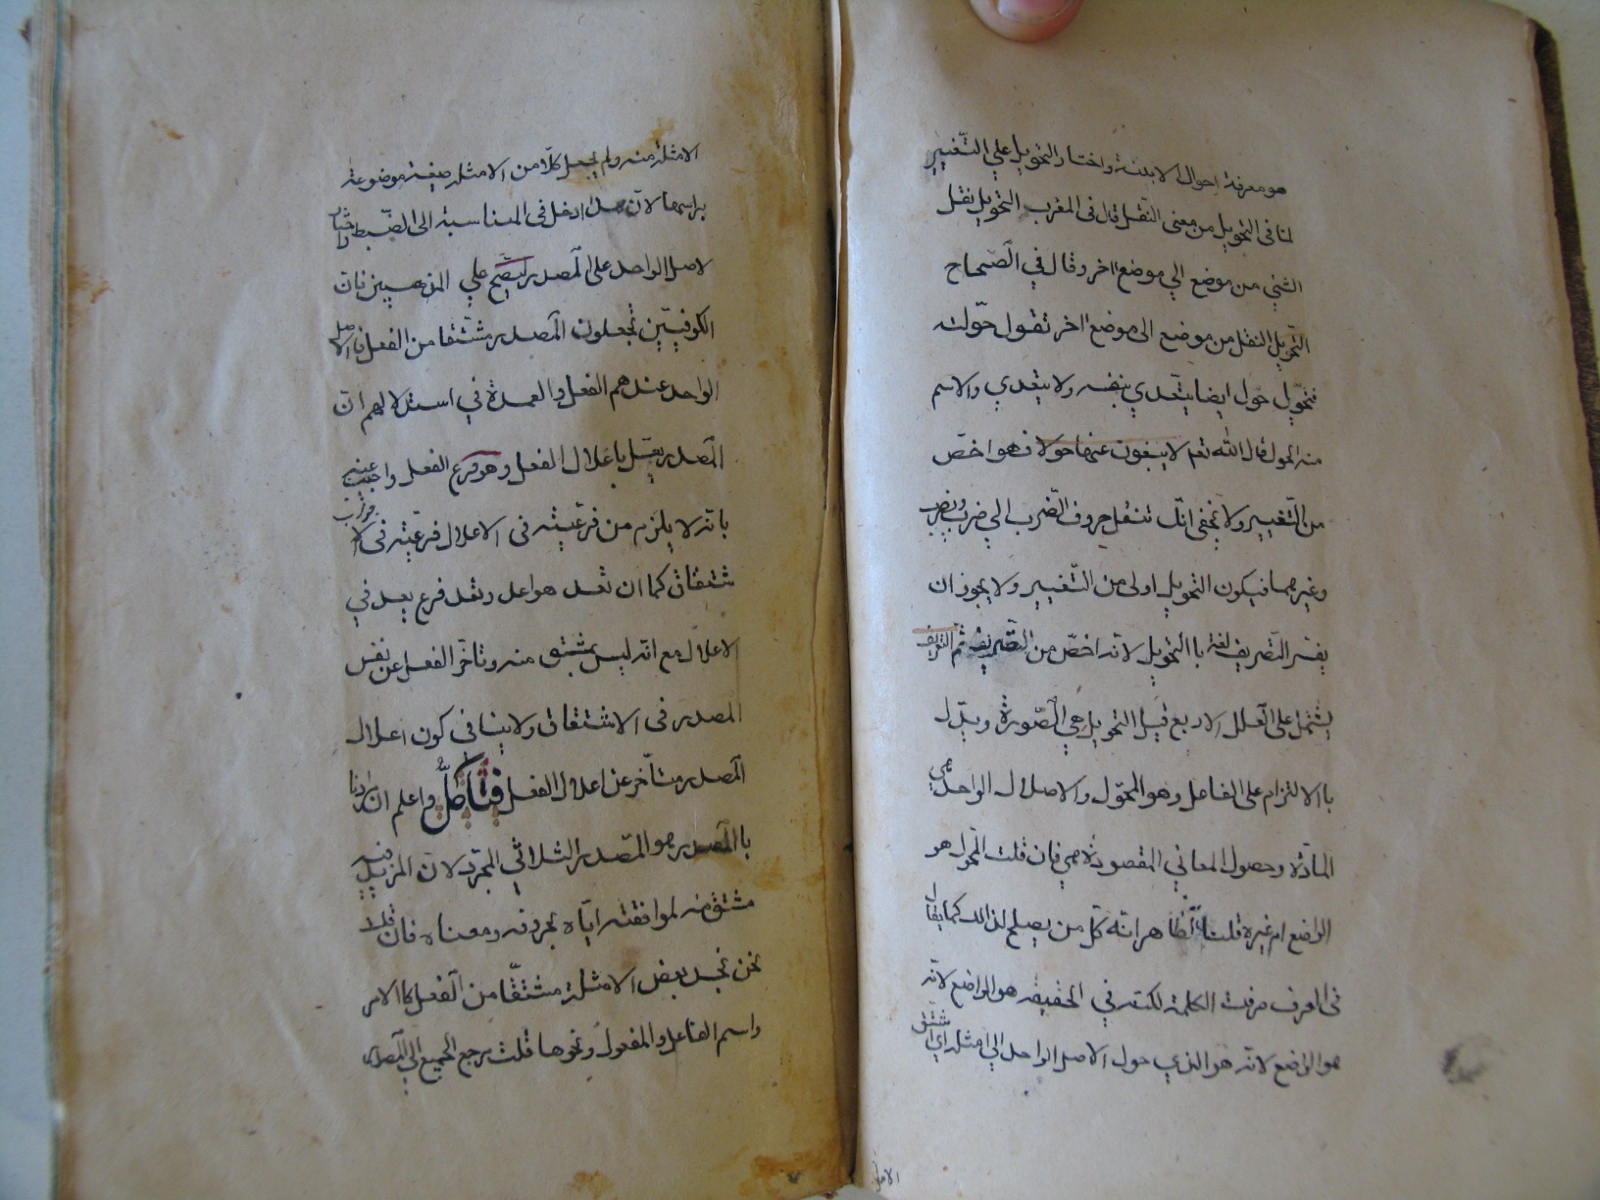 هو معرفة احوال الابنية واختار التحويل علي التّغيير
لما في التحويل من معنى النّقل قال في المغرب التحويل نقل
الشيء من موضع الي موضع اخر وقال في الصّحاح
التّحويل النقل من موضع الى موضع اخر تقول حوّلته
فتحوّل حوّل ايضا يتعدي بنفسه ولا يتعدي والاسم
منه الحول قال الله تعم لا يبغون عنها حولا فهو اخصّ
من التّغيير ولا يخفى انّك تنقل حروف الضّرب الي ضرب ويضرب
وغيرهما فيكون التحويل اولى من التّغيير ولا يجوز ان
يفسّر التّصريف لغة باالتّحويل لانّه اخصّ من التّصريف ثم التعريف
يشتمل على العلل الاربع قيل التحويل هي الصّورة ويدل
باالالتزام على الفاعل وهو المحوّل والاصل الواحد هي
المادّة وحصول المعاني المقصودة هي فان قلت المحوّل هو
الواضع ام غيره قلت الظّاهر انّه كلّ من يصلح لذالك كما يقال
في العرف صرفت الكلمة لكنّه في الحقيقة هو الواضع لانّه
هو الواضع لانّه هو الذي حول الاصل الواحد الي امثلة اي اشتق
الامثلة منه ولم يجعل كلّا من الامثلة صيغة موضوعة
براسها لانّ هذا ادخل في المناسبة الى الضّبط واختار
لاصل الواحد على المصدر ليصّح علي المذهبين فان
الكوفيّين يجعلون المصدر مشتّقا من الفعل فالاصل
الواحد عندهم الفعل والعمدة في استدلالهم انّ
المصدر يعتل باعلال الفعل وهو فرع الفعل واجيب عنه
بانّه لا يلزم من فرعّيته في الاعلال فرعّيته في الا
شتقاق كما ان نعد هو اعل ونعد فرع يعد في
الاعلال مع انّه ليس بمشتق منه وتاخّر الفعل عن نفس
المصدر في الاشتقاق ولا ينافي كون اعلال
المصدر متأخّر عن اعلال الفعل فَتَأَمَّلْ واعلم ان مرادنا
باالمصدر هو المصدر الثلاثي المجرّد لانّ المزيد فيه
مشتق منه لموافقته ايّاه بحروفه ومعناه فان قلت
نحن نجد بعض الامثلة مشتقّا من الفعل كالامر
واسم الفاعل والمفعول ونحوها قلت مرجع الجميع الي المصدر